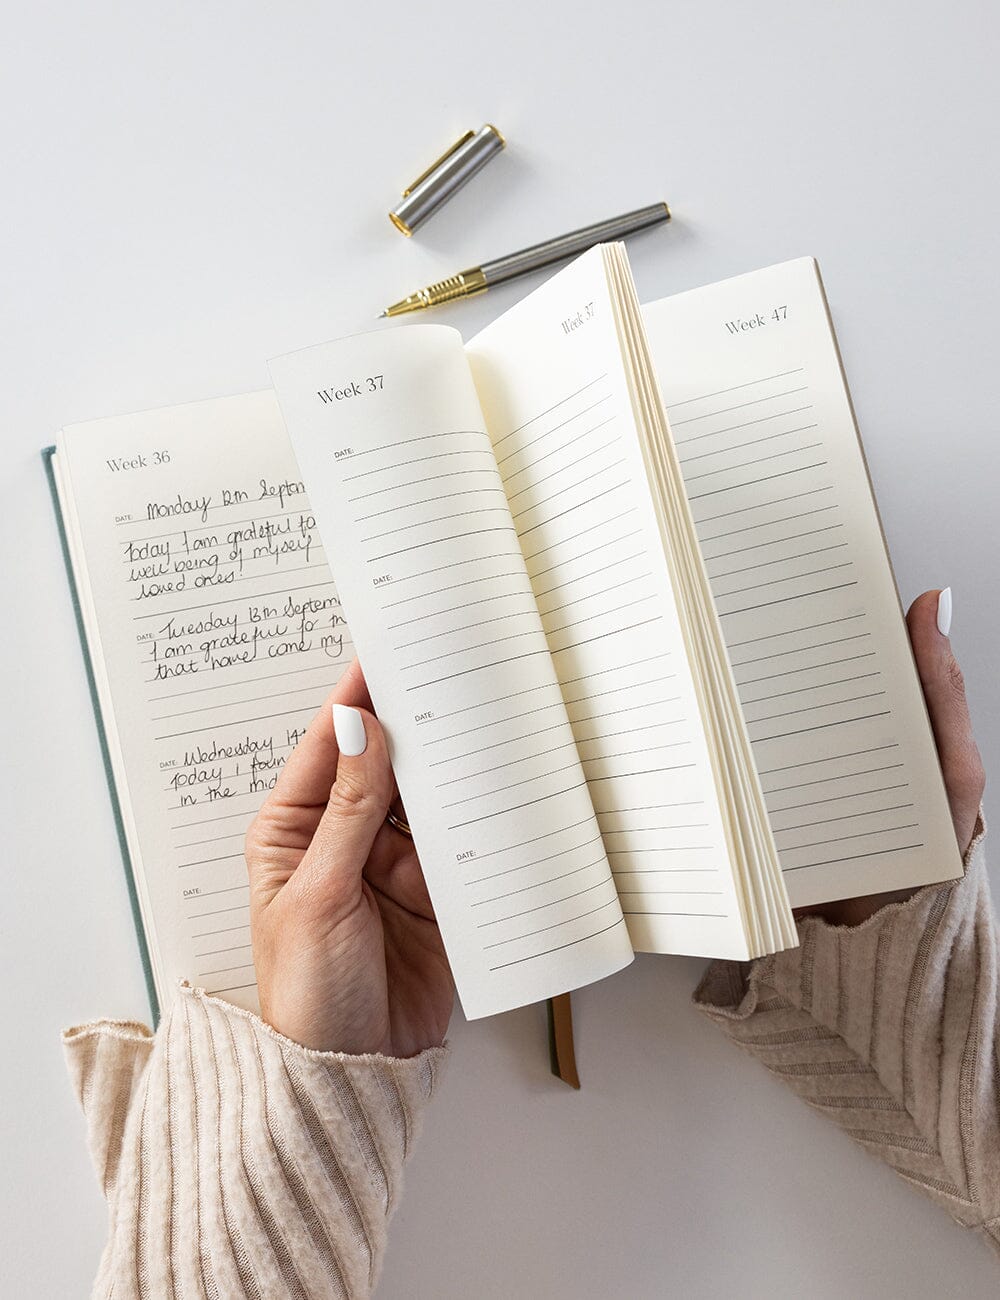 Week 36
DATE: Monday 12th Septem
Today I am grateful fo
well being of myself
loved ones.
DATE: Tuesday 13th Septem
I am grateful for th
that have come my
DATE: Wednesday 14t
Today I foun
in the mid
DATE:
Week 37
DATE:
DATE:
DATE:
DATE:
Week 37
Week 47